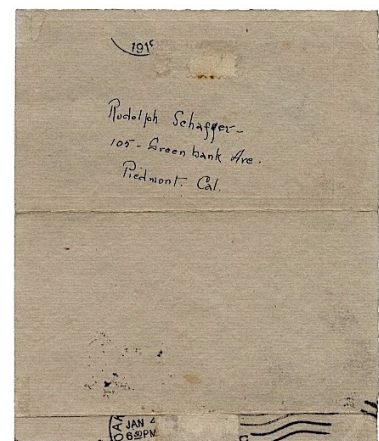 191
Rudolph Schaffer-
105 - Greenbank Ave.
Piedmont. Cal.
OAK
JAN 4
6 30 PM